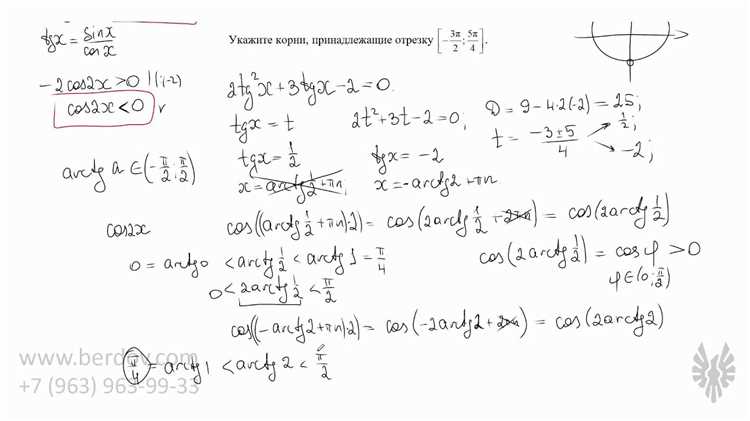 tgx = sinx / cosx
Укажите корни, принадлежащие отрезку [-3π/2; 5π/4].
-2cos2x > 0 | (:(-2)
cos2x < 0
2tg²x + 3tgx - 2 = 0
tgx = t 2t² + 3t - 2 = 0; D = 9 - 4·2(-2) = 25;
t = (-3 ± 5)/4 1/2; -2;
arctg a ∈ (-π/2; π/2)
tgx = 1/2 tgx = -2
x = arctg 1/2 + πn x = -arctg2 + πn
cos2x cos((arctg 1/2 + πn)·2) = cos(2arctg 1/2 + 2πn) = cos(2arctg 1/2)
0 = arctg0 < arctg 1/2 < arctg1 = π/4 cos(2arctg 1/2) = cosφ > 0
φ∈(0; π/2)
0 < 2arctg 1/2 < π/2
cos((-arctg2 + πn)·2) = cos(-2arctg2 + 2πn) = cos(2arctg2)
π/4 = arctg1 < arctg2 < π/2
www.berdov.com
+7 (963) 963-99-33